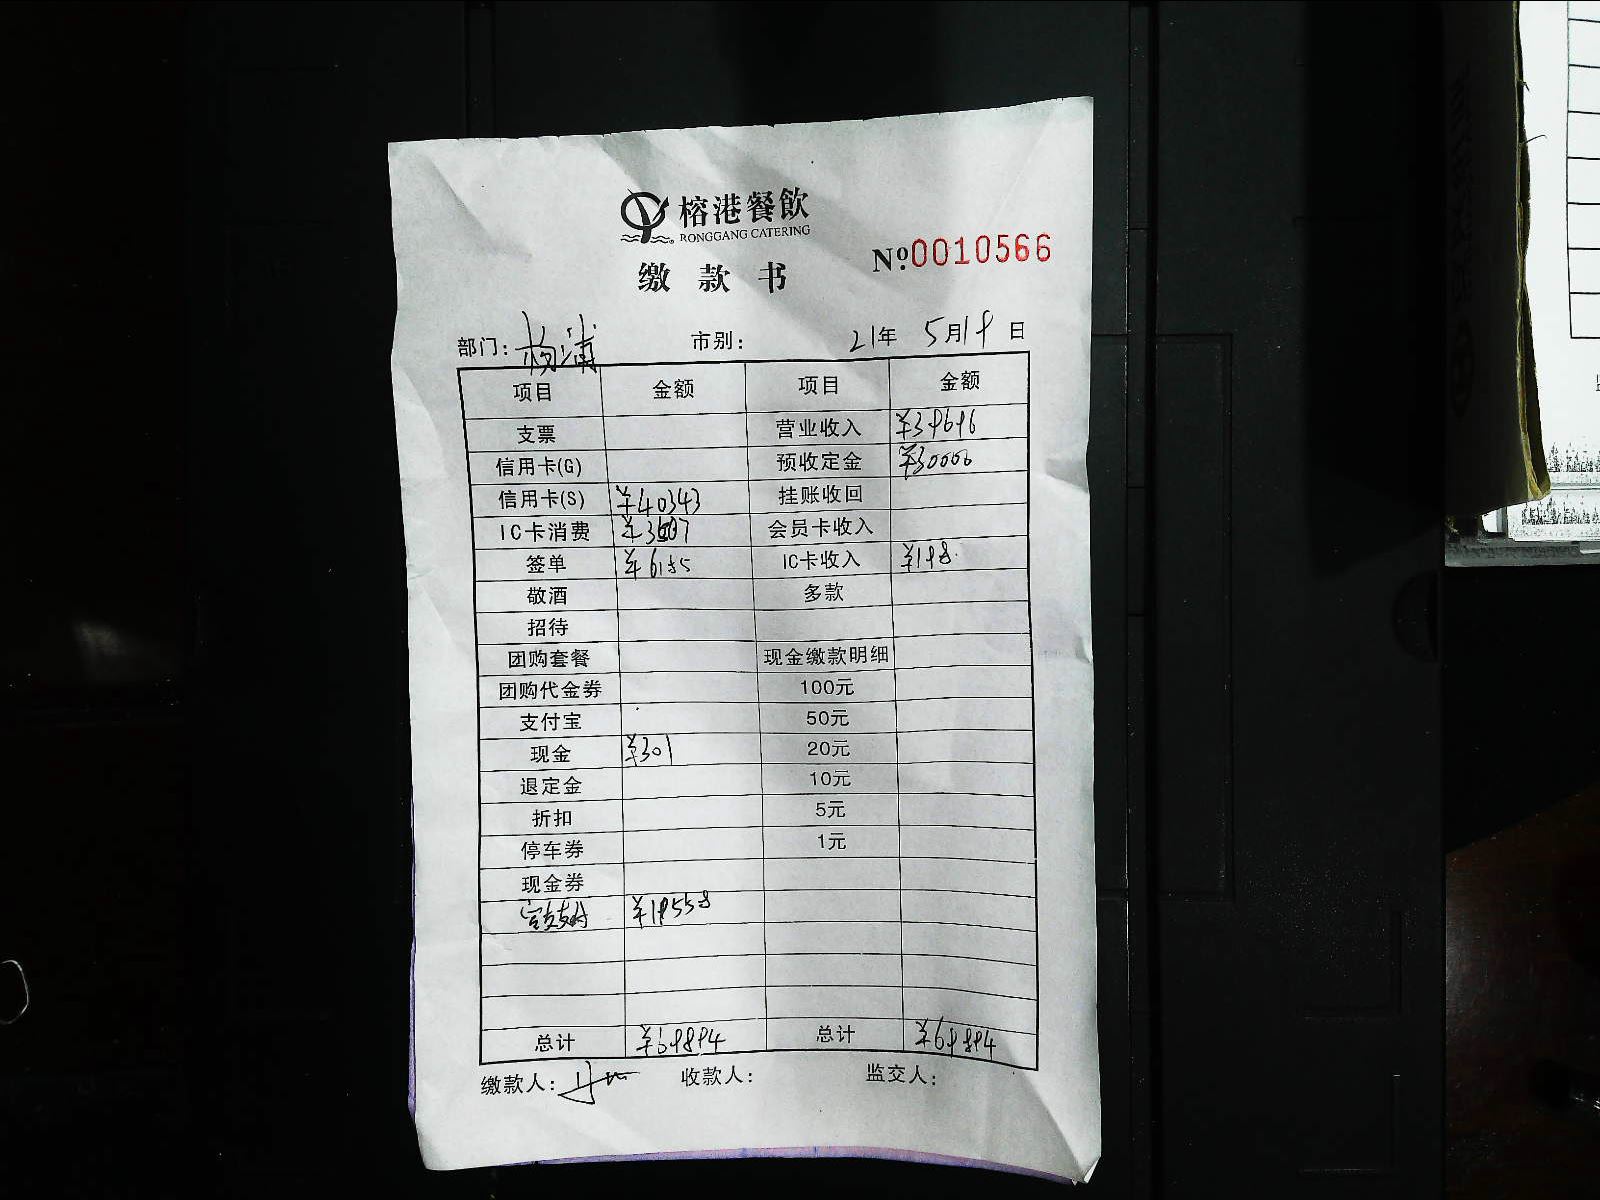 榕港餐飲
RONGGANG CATERING
缴款书
№ 0010566
部门: 杨浦 市别: 21年 5月19日
项目 金额 项目 金额
支票 营业收入 ¥39696
信用卡(G) 预收定金 ¥30000
信用卡(S) ¥40343 挂账收回
IC卡消费 ¥3537 会员卡收入
签单 ¥6155 IC卡收入 ¥198
敬酒 多款
招待
团购套餐 现金缴款明细
团购代金券 100元
支付宝 50元
现金 ¥301 20元
退定金 10元
折扣 5元
停车券 1元
现金券
¥19558
总计 ¥69894 总计 ¥69894
缴款人: 收款人: 监交人: